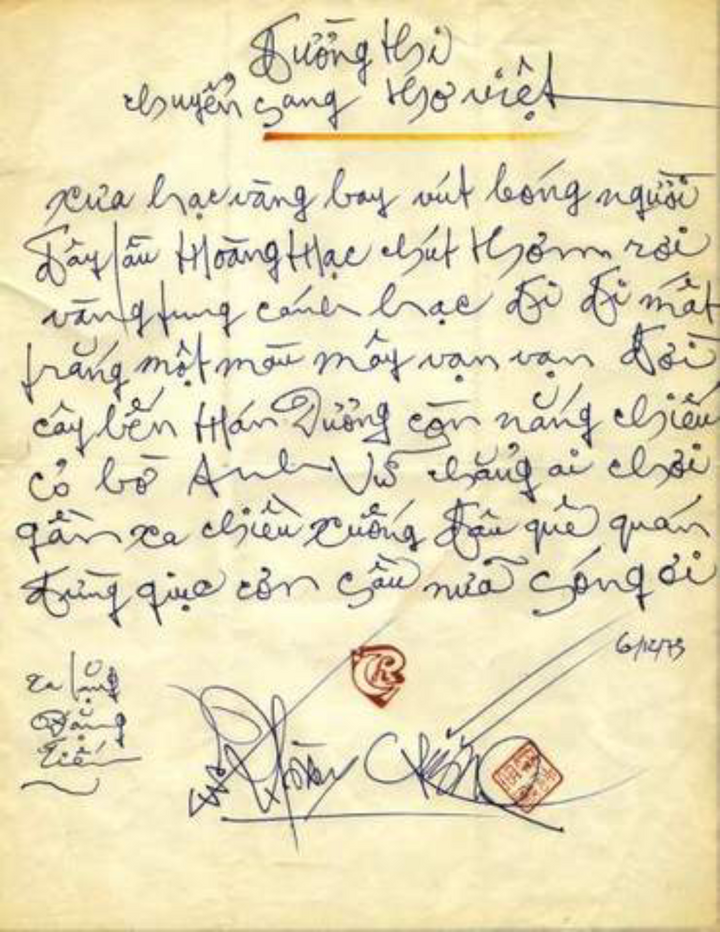 Đường thi
chuyển sang thơ việt
xưa hạc vàng bay vút bóng người
Đây lầu Hoàng Hạc chút thơm rơi
vàng tung cánh hạc đi đi mất
trắng một màu mây vạn vạn đời
cây bến Hán Dương còn nắng chiếu
cỏ bờ Anh Vũ chẳng ai chơi
gần xa chiều xuống đâu quê quán
đừng giục cơn sầu nữa sóng ơi
6/12/73
tặng
Đặng
Tiến